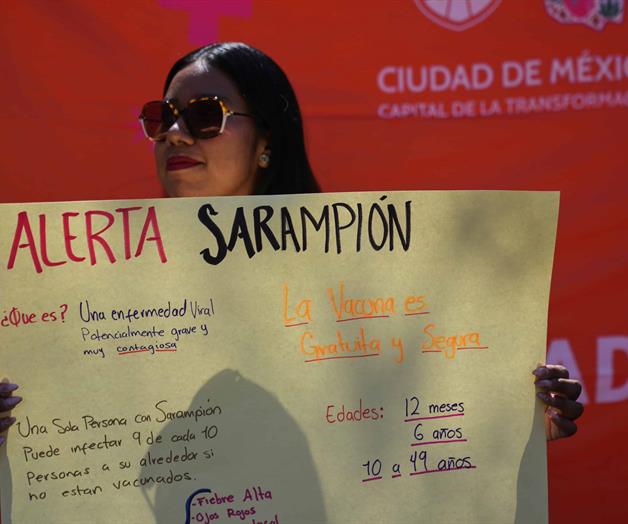 CIUDAD DE MÉXICO
CAPITAL DE LA
ALERTA SARAMPIÓN
¿Que es? Una enfermedad Viral
Potencialmente grave y
muy contagiosa
La Vacuna es
Gratuita y Segura
Una Sola Persona con Sarampión
Puede infectar 9 de cada 10
Personas a su alrededor si
no estan vacunados.
Edades: 12 meses
6 años
10 a 49 años
-Fiebre Alta
-Ojos Rojos